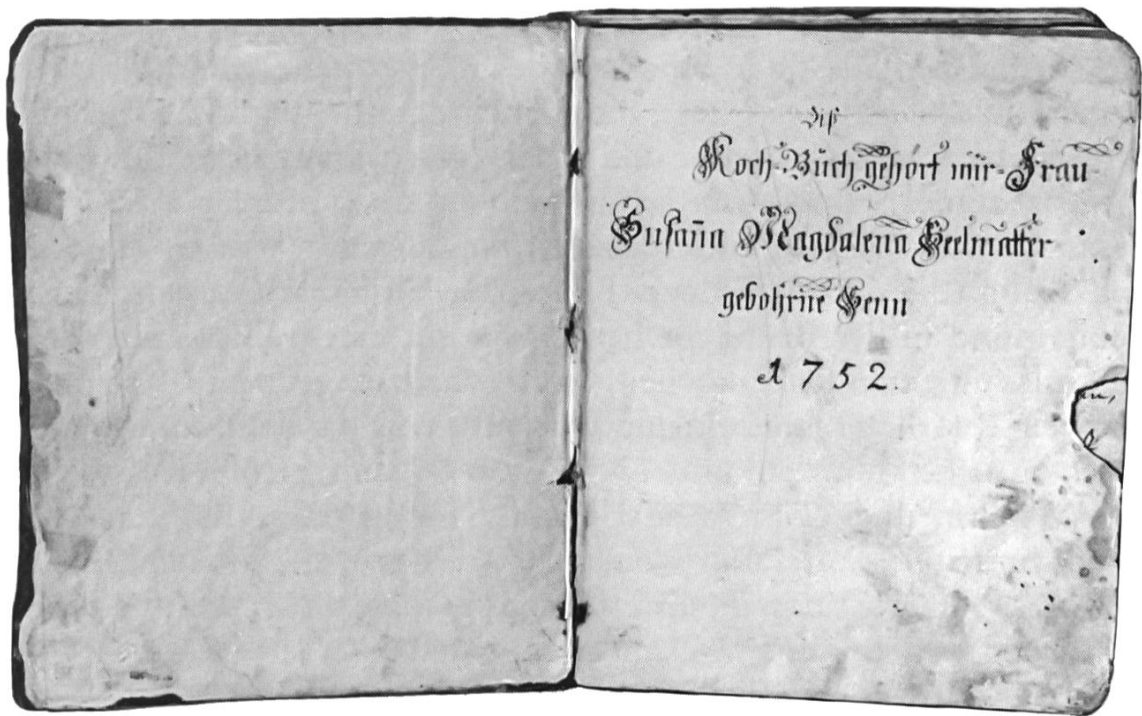 Diß
Koch-Buch gehört mir Frau
Susan̄a Magdalena Seelmatter
gebohrne Senn
1752.